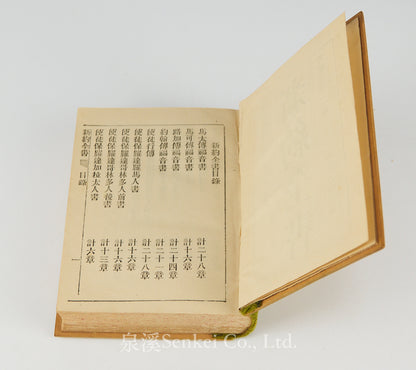 新約全書目錄
馬太傳福音書 計二十八章
馬可傳福音書 計十六章
路加傳福音書 計二十四章
約翰傳福音書 計二十一章
使徒行傳 計二十八章
使徒保羅達羅馬人書 計十六章
使徒保羅達哥林多人前書 計十六章
使徒保羅達哥林多人後書 計十三章
使徒保羅達加拉太人書 計六章
新約全書 目錄 一
泉溪Senkei Co., Ltd.